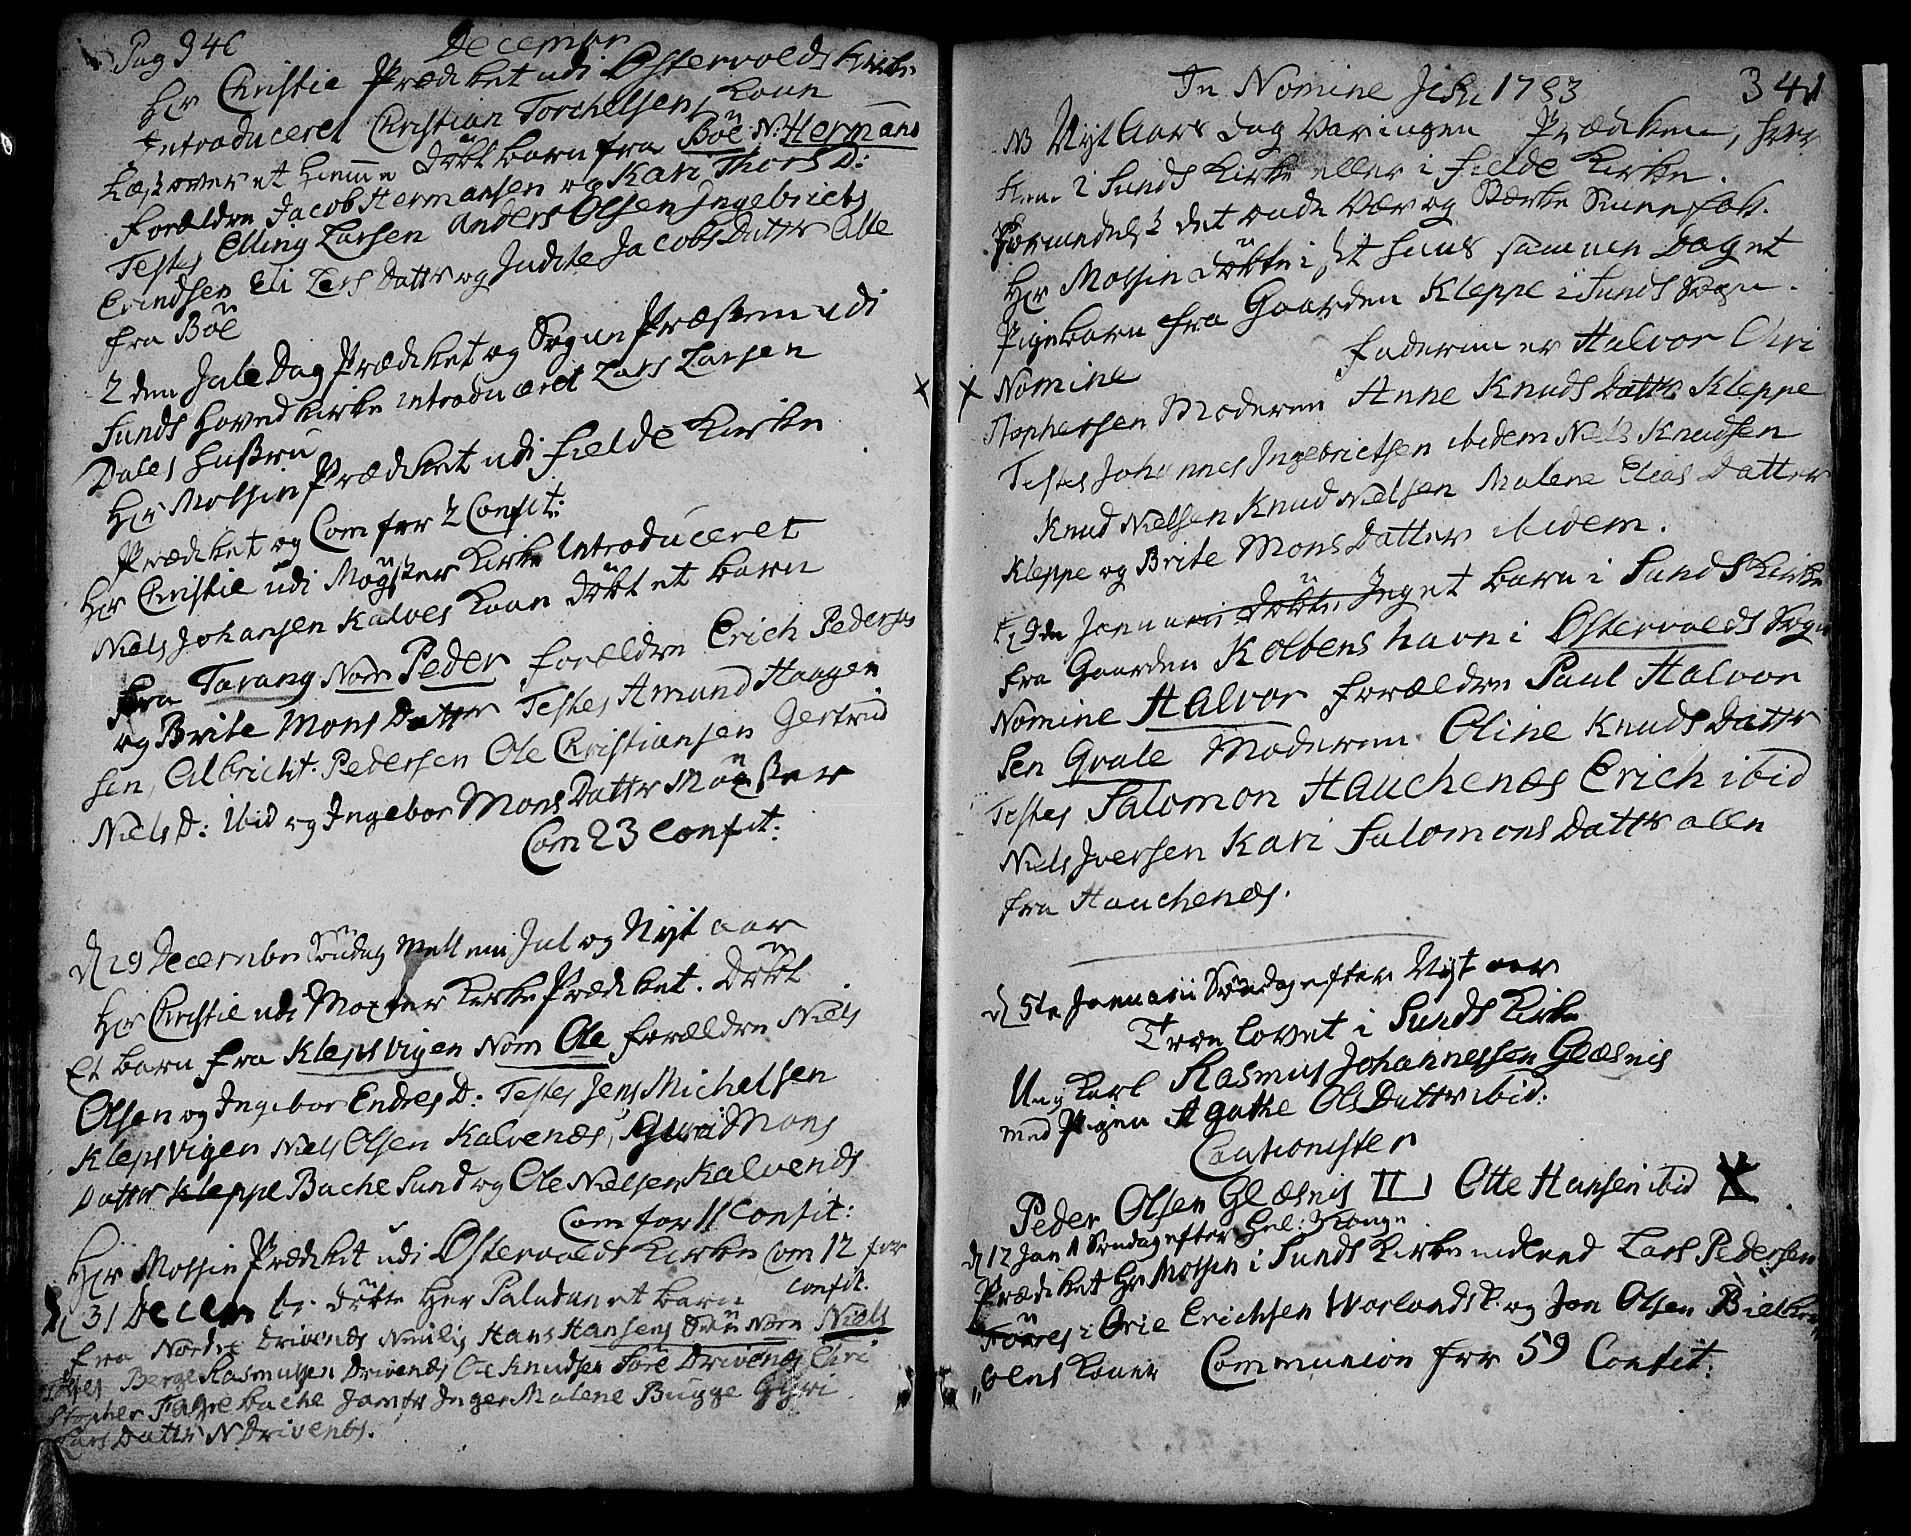 Pag 340
Decembr
Hr Christie Prædiket udi Østervolds Kirke
Introduceret Christian Torchelsens Kone
Læst over et hiemme Döbt barn fra Böe N: Hermand
Forældre Jacob Hermansen og Kari Thors D:
Testes Elling Larsen Anders Olsen Ingebricts
Erindsen Eli Lars Datter og Judite Jacobs Datter Alle
fra Böe
2 den Jule Dag Prædiket og Sogne Præsten udi
Sunds Hoved kirke introduceret Lars Larsen
Dales Hustru
Hr Mossin Prædiket udi Fielde Kirke
Prædiket og Com for 2 Confit:
Hr Christie udi Mögster Kirke Introduceret
Niels Johansen Kalves Kone Döbt et barn
fra Tarang Nom Peder Forældre Erich Pederss
og Brite Mons Datter Testes Amund Haagen
sen, Albricht Pedersen Ole Christiansen Gertrud
Niels D: ibid og Ingebor Mons Datter Mögster
Com 23 Confit:
d 29 December Söndag mellem Jul og Nyt aar
Hr Christie udi Moxter Kirke Prædiket. Döbt
Et barn fra Klepsvigen Nom Ole Forældre Niels
Olsen og Ingebor Endres D: Testes Jens Michelsen
Klepsvigen Niels Olsen Kalvenæs, Guri Mons
Datter Kleppe Bache Sund og Ole Nielsen Kalvenæs
Com for 11 Confit:
Hr Mossin Prædiket udi Østervolds Kirke Com 12 for
confit.
d 31 Decemb: döbte Her Paludan et barn
fra Nordre Drivenes Nemlig Hans Hansens Sön Nom Niels
Testes Berge Rasmussen Drivenes Ole Knudsen Tore Drivenes Chri
stopher Fagrebache Jomfr Inger Malene Bugge Gyri
Lars Datter N Drivenes.
In Nomine Jesu 1783
341
NB Nyt Aars dag Var ingen Prædiken, hver
ken i Sunds Kirke eller i Fielde Kirke.
Formedelst det onde Vær og Stærke Snee fok.
Hr Mossin döbte i sit huus sammen Dag et
Pigebarn fra Gaarden Kleppe i Sunds Sogn.
Faderen er Halvor Chri
X X Nomine
stophersen Moderen Anne Knuds Datter Kleppe
Testes Johannes Ingebrictsen ibidem Niels Knudsen
Knud Nielsen Knud Nielsen Malene Elias Datter
Kleppe og Brite Mons Datter ibidem.
d den Januarii döbte Jeg et barn i Sunds Kirke
fra Gaarden Kolbenshavn i Østervolds Sogn
Nomine Halvor Forældre Paul Halvor
sen Qvale Moderen Oline Knuds Datter
Testes Salomon Hauchenæs Erich ibid
Niels Iversen Kari Salomons Datter alle
fra Hauchenæs.
d 5te Januarii Söndag efter Nyt aar
Troe lovet i Sunds Kirke
Ung Karl Rasmus Johannessen Glæsnis
med Pigen Agathe Ols Datter ibid.
Cautionister
Peder Olsen Glæsnis Otte Hansen ibid X
d 12 Jan 1 Söndag efter Hel: 3 Konge
Prædiket Hr Mossin i Sunds Kirke indled Lars Pedersen
Töres i Orie Erichsen Worlands k: og Jon Olsen Bielker
„olens Koner Communion for 59 Confit: